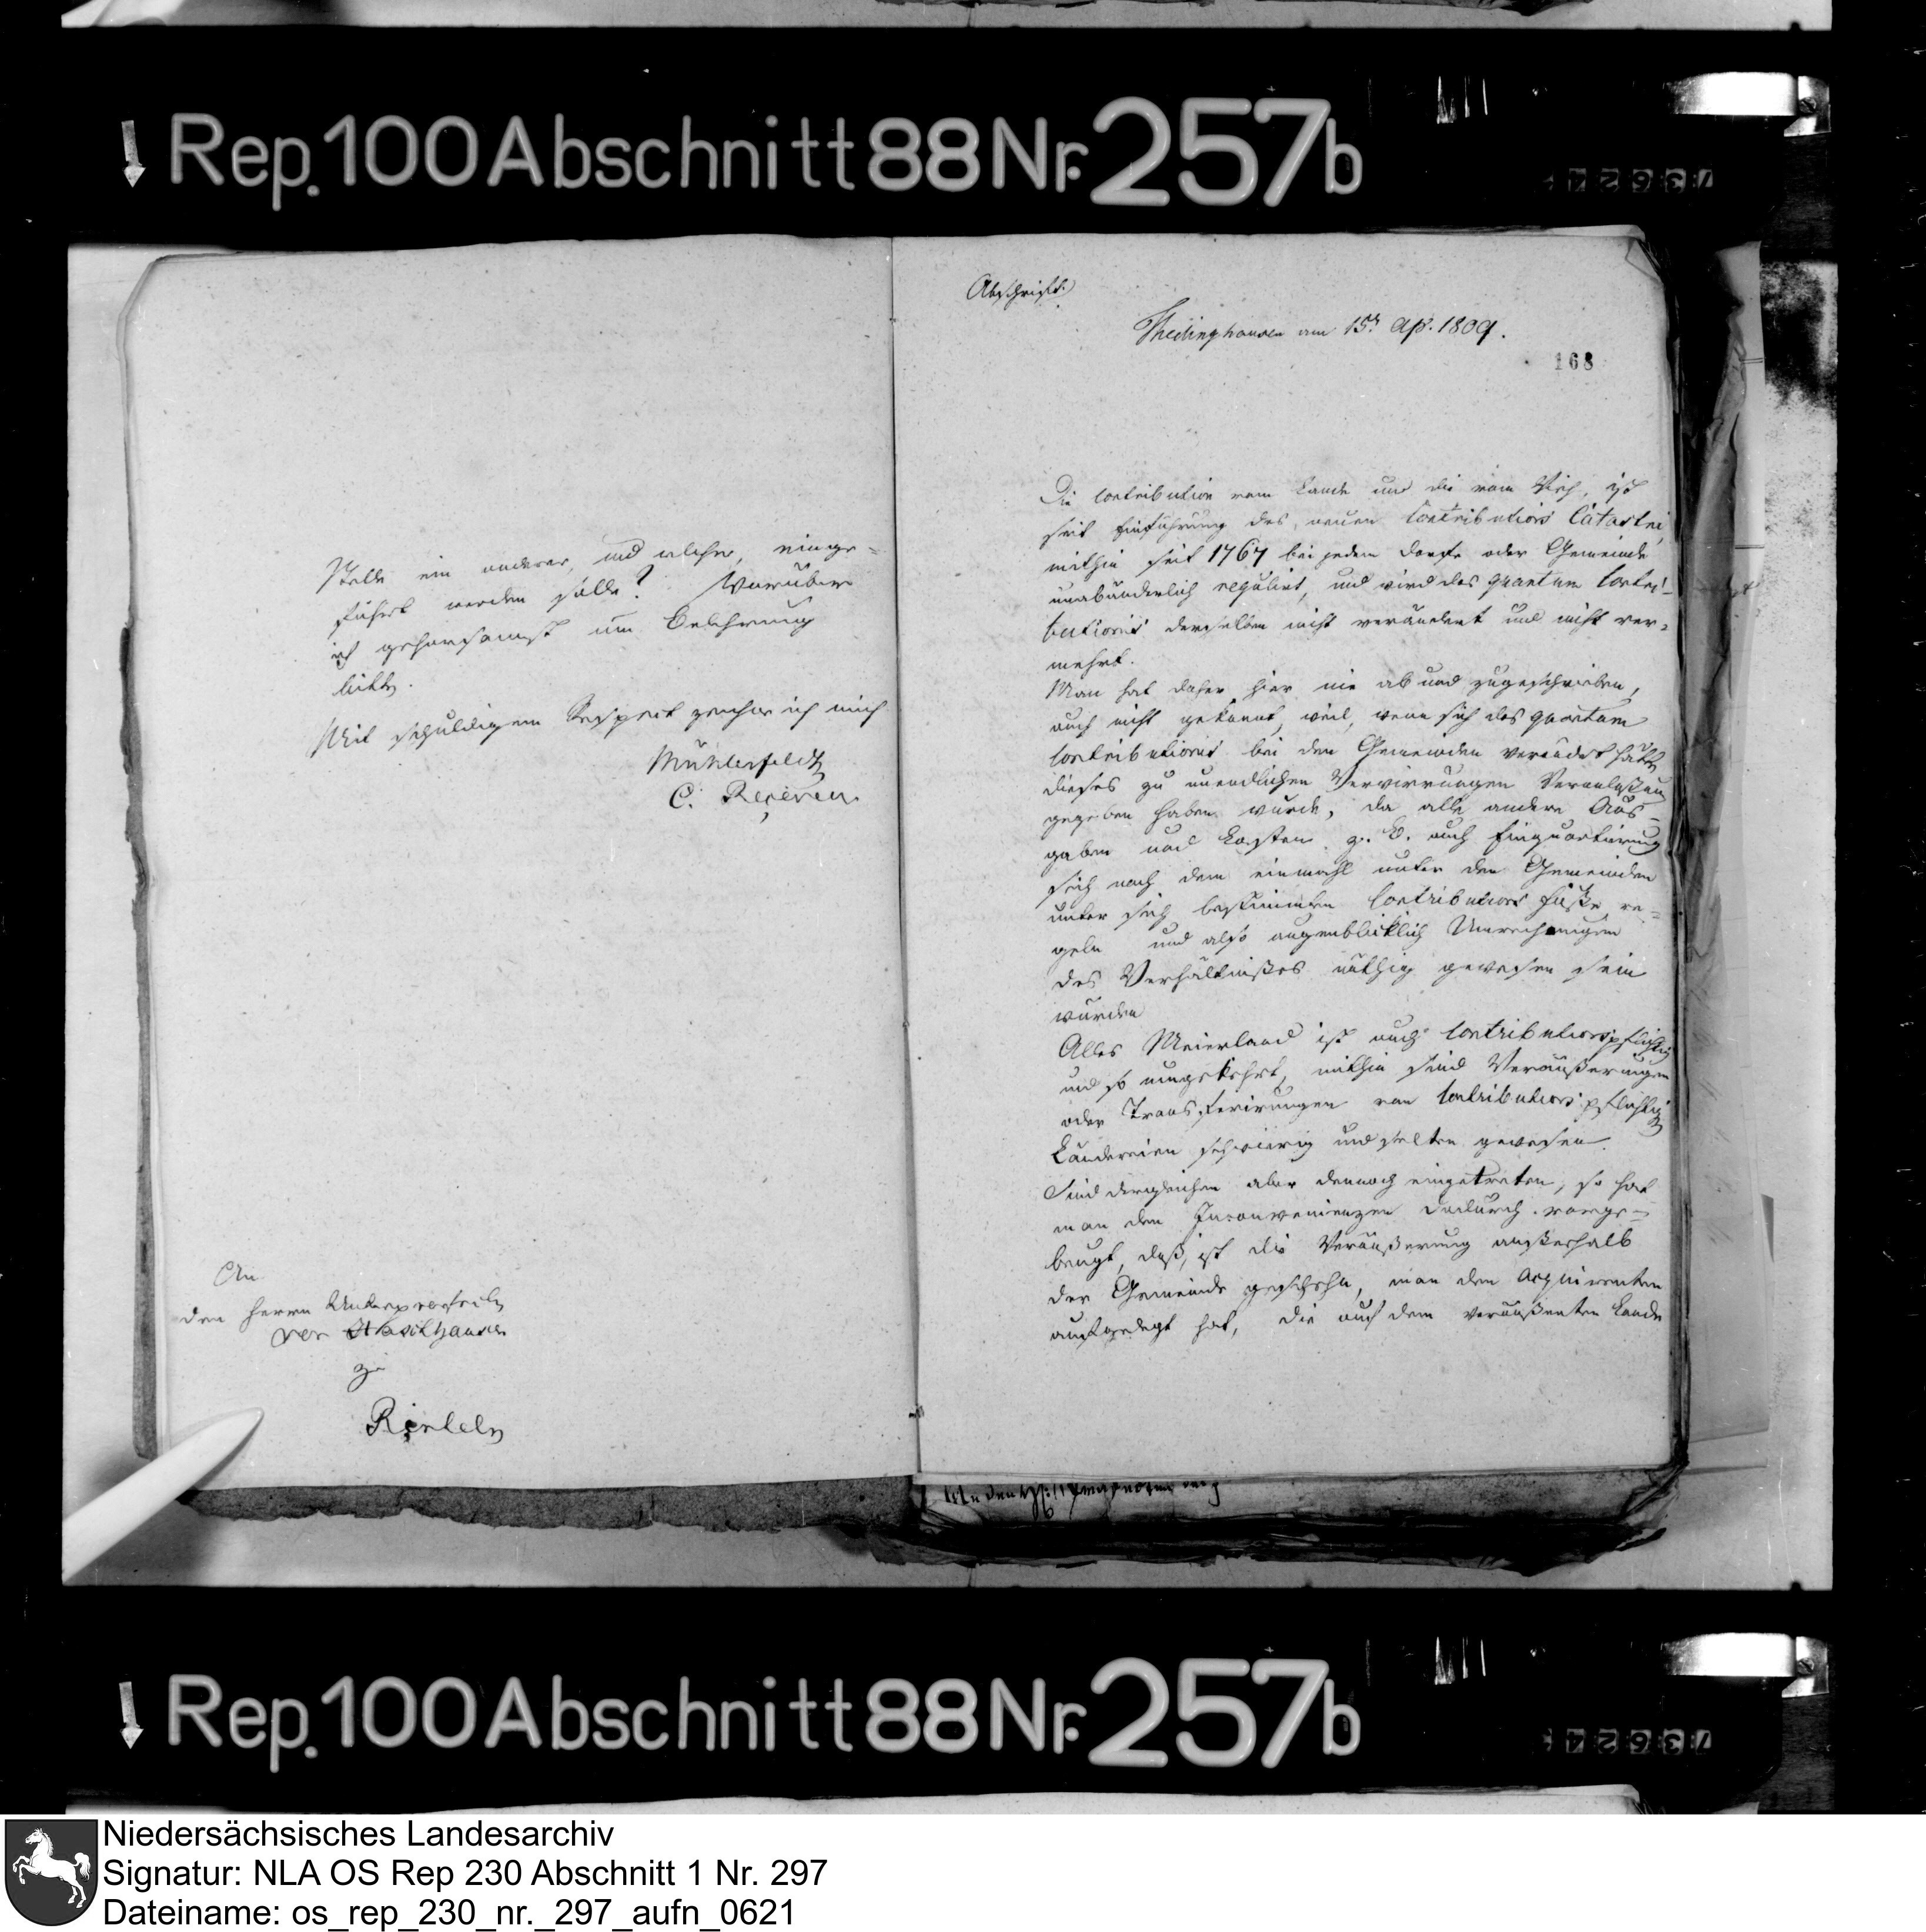 Rep. 100 Abschnitt 88 Nr. 257b
73624
Stelle ein anderer, und welcher, einge=
führt werden solle? Worüber
ich gehorsamst um Belehrung
bitte.
Mit schuldigem Respect zeichne ich mich
Mühlenfeldt
C.
An
den Herrn Unterpraefecten
von
zu
Rinteln
Abschrift.
Thedinghausen am 15t Ap. 1809.
168
Die Contribution vom Lande und die vom Vieh, ist
seit Einführung des neuen Contributions Catastri,
mithin seit 1767 bei jedem Dorfe oder Gemeinde
unabänderlich regulirt, und wird das quantum Contri-
butionis derselben nicht verändert und nicht ver=
mehrt.
Man hat daher hier nie ab und zugeschrieben,
auch nicht gekonnt, weil, wenn sich das quantum
Contributionis bei den Gemeinden verändert hätte
dieses zu unendlichen Verwirrungen Veranlaßung
gegeben haben würde, da alle andere Aus-
gaben und Lasten z. B. auch Einquartirung
sich nach dem einmahl unter den Gemeinden
unter sich bestimmten Contributions Fuße re=
geln und also augenblicklich Umrechnungen
des Verhältnißes nöthig gewesen sein
würden
Alles Meierland ist auch Contributionspflichtig
und so umgekehrt, mithin sind Veräußerungen
oder Transferirungen von Contributionspflichtig
Ländereien schwierig und selten gewesen.
Sind dergleichen aber dennoch eingetreten, so hat
man den Inconvenienzen dadurch vorge=
beugt, daß, ist die Veräußerung außerhalb
der Gemeinde geschehn, man den Acquirenten
aufgelegt hat, die auf dem veräußerten Lande
Rep. 100 Abschnitt 88 Nr. 257b
73624
Niedersächsisches Landesarchiv
Signatur: NLA OS Rep 230 Abschnitt 1 Nr. 297
Dateiname: os_rep_230_nr._297_aufn_0621